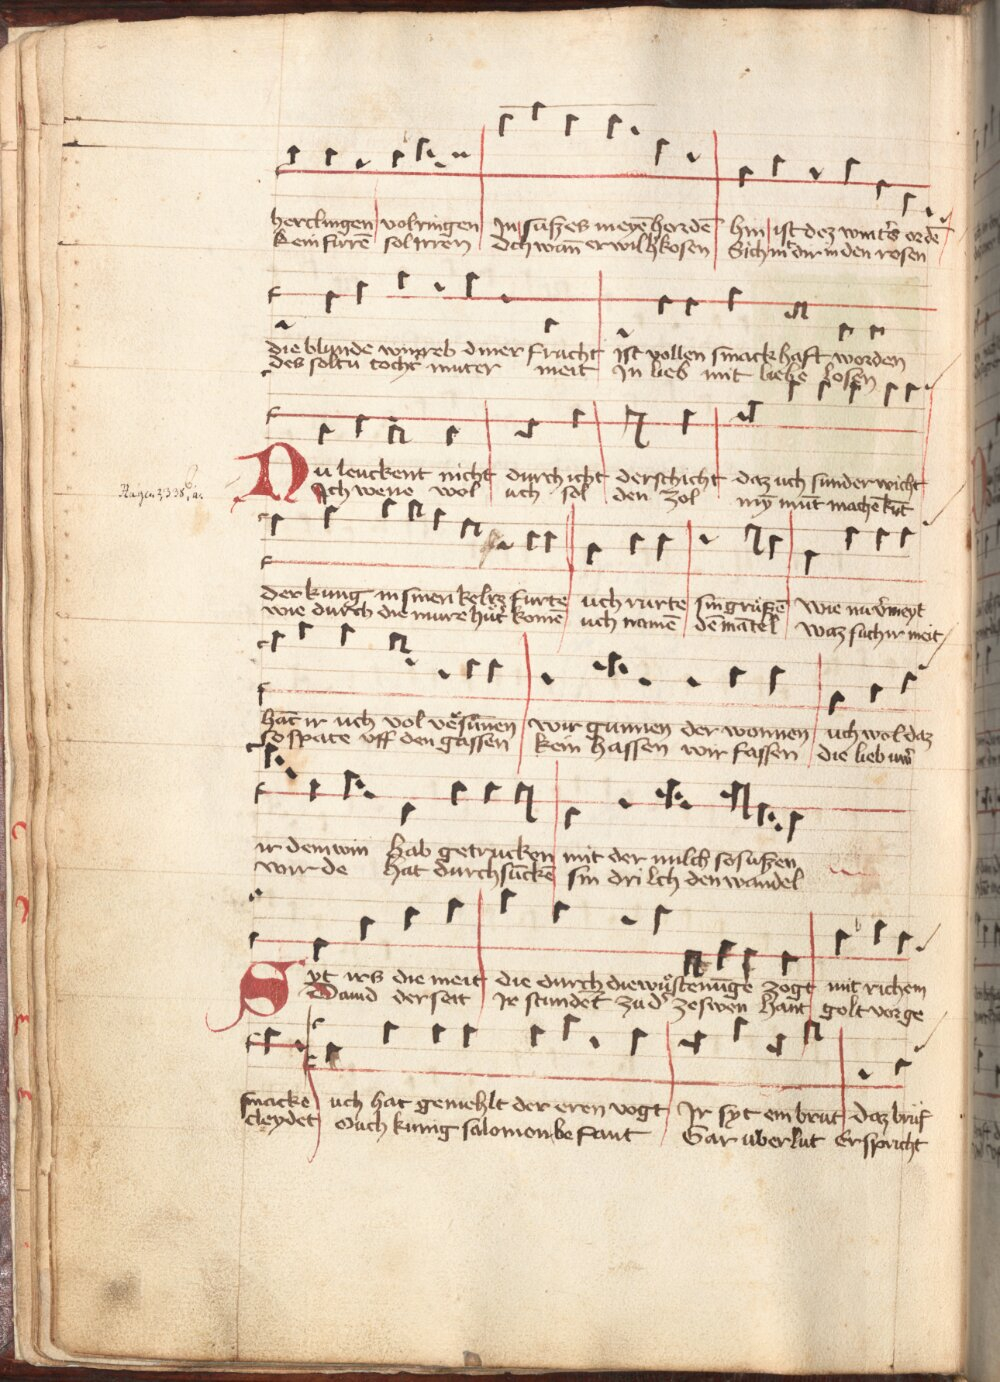 herclingen volringen In sußes meyē horden hin ist dez wint's ordē
kein fürre sol irren dich wan er wil kosen Sich mit dir in den rosen
die blunde winreb diner fracht ist vollen smackhaft worden
des soltu tocht' muter meit In lieb mit liebe losen
Nu leuckent nicht durch icht der schicht daz uch sunder wicht
Ich wene wol uch sol den zol my mut machē kūt
Hagen 2, 338, a.
der kung in sinen kelr furte uch rurte sin grußē Wie nu v'meyt
wie durch die mure hut komē uch namē dē mātel Waz such ir meit
hat ir uch vol vesunen wir gunnen der wonnen uch wol daz
so spate uff den gassen kein hassen wir fassen die lieb uw'
ir dem win hab getrucken mit der milch so sußen
wirde hat durchsuckē sin drilch den wandel
Syt irs die meit die durch die wustenūge zogt mit richem
Dauid der seit Ir stundet zu d' zeswen hant golt vorge
smacke uch hat gemehlt der eren vogt Ir syt ein brut daz brüf
cleydet Ouch kunig salomon be kant Gar uberlut Er spricht